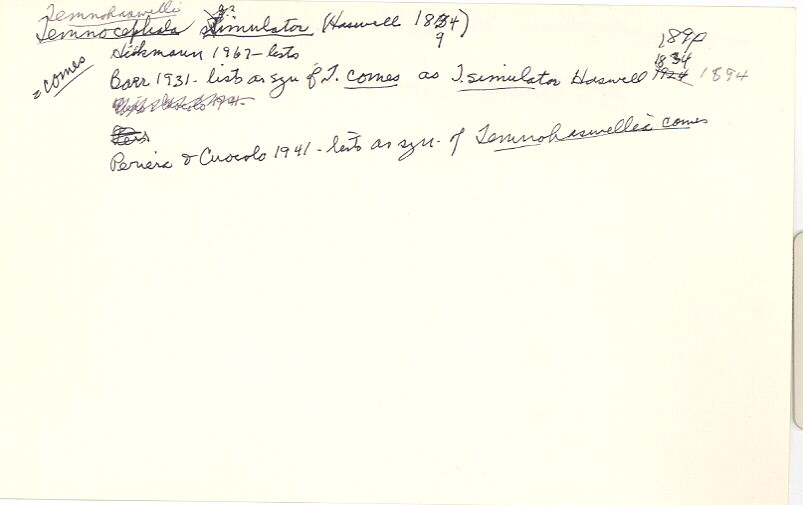 Temnohaswelli
Temnocephala simulator (Haswell 1834)
s.?
9
Hickmann 1967 - lists
= comes
1890
1834
Baer 1931 - lists as syn of T. comes as T. simulator Haswell 1924 1894
Periera & Cuocolo 1941 - lists as syn. of Temnohaswellia comes